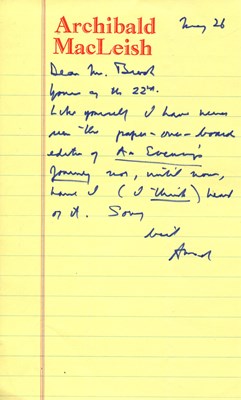 Archibald
MacLeish
May 26
Dear Mr. Brook
Yours of the 22nd.
Like yourself I have never
seen the paper-over-board
edition of An Evening's
Journey nor, until now,
have I (I think) heard
of it. Sorry